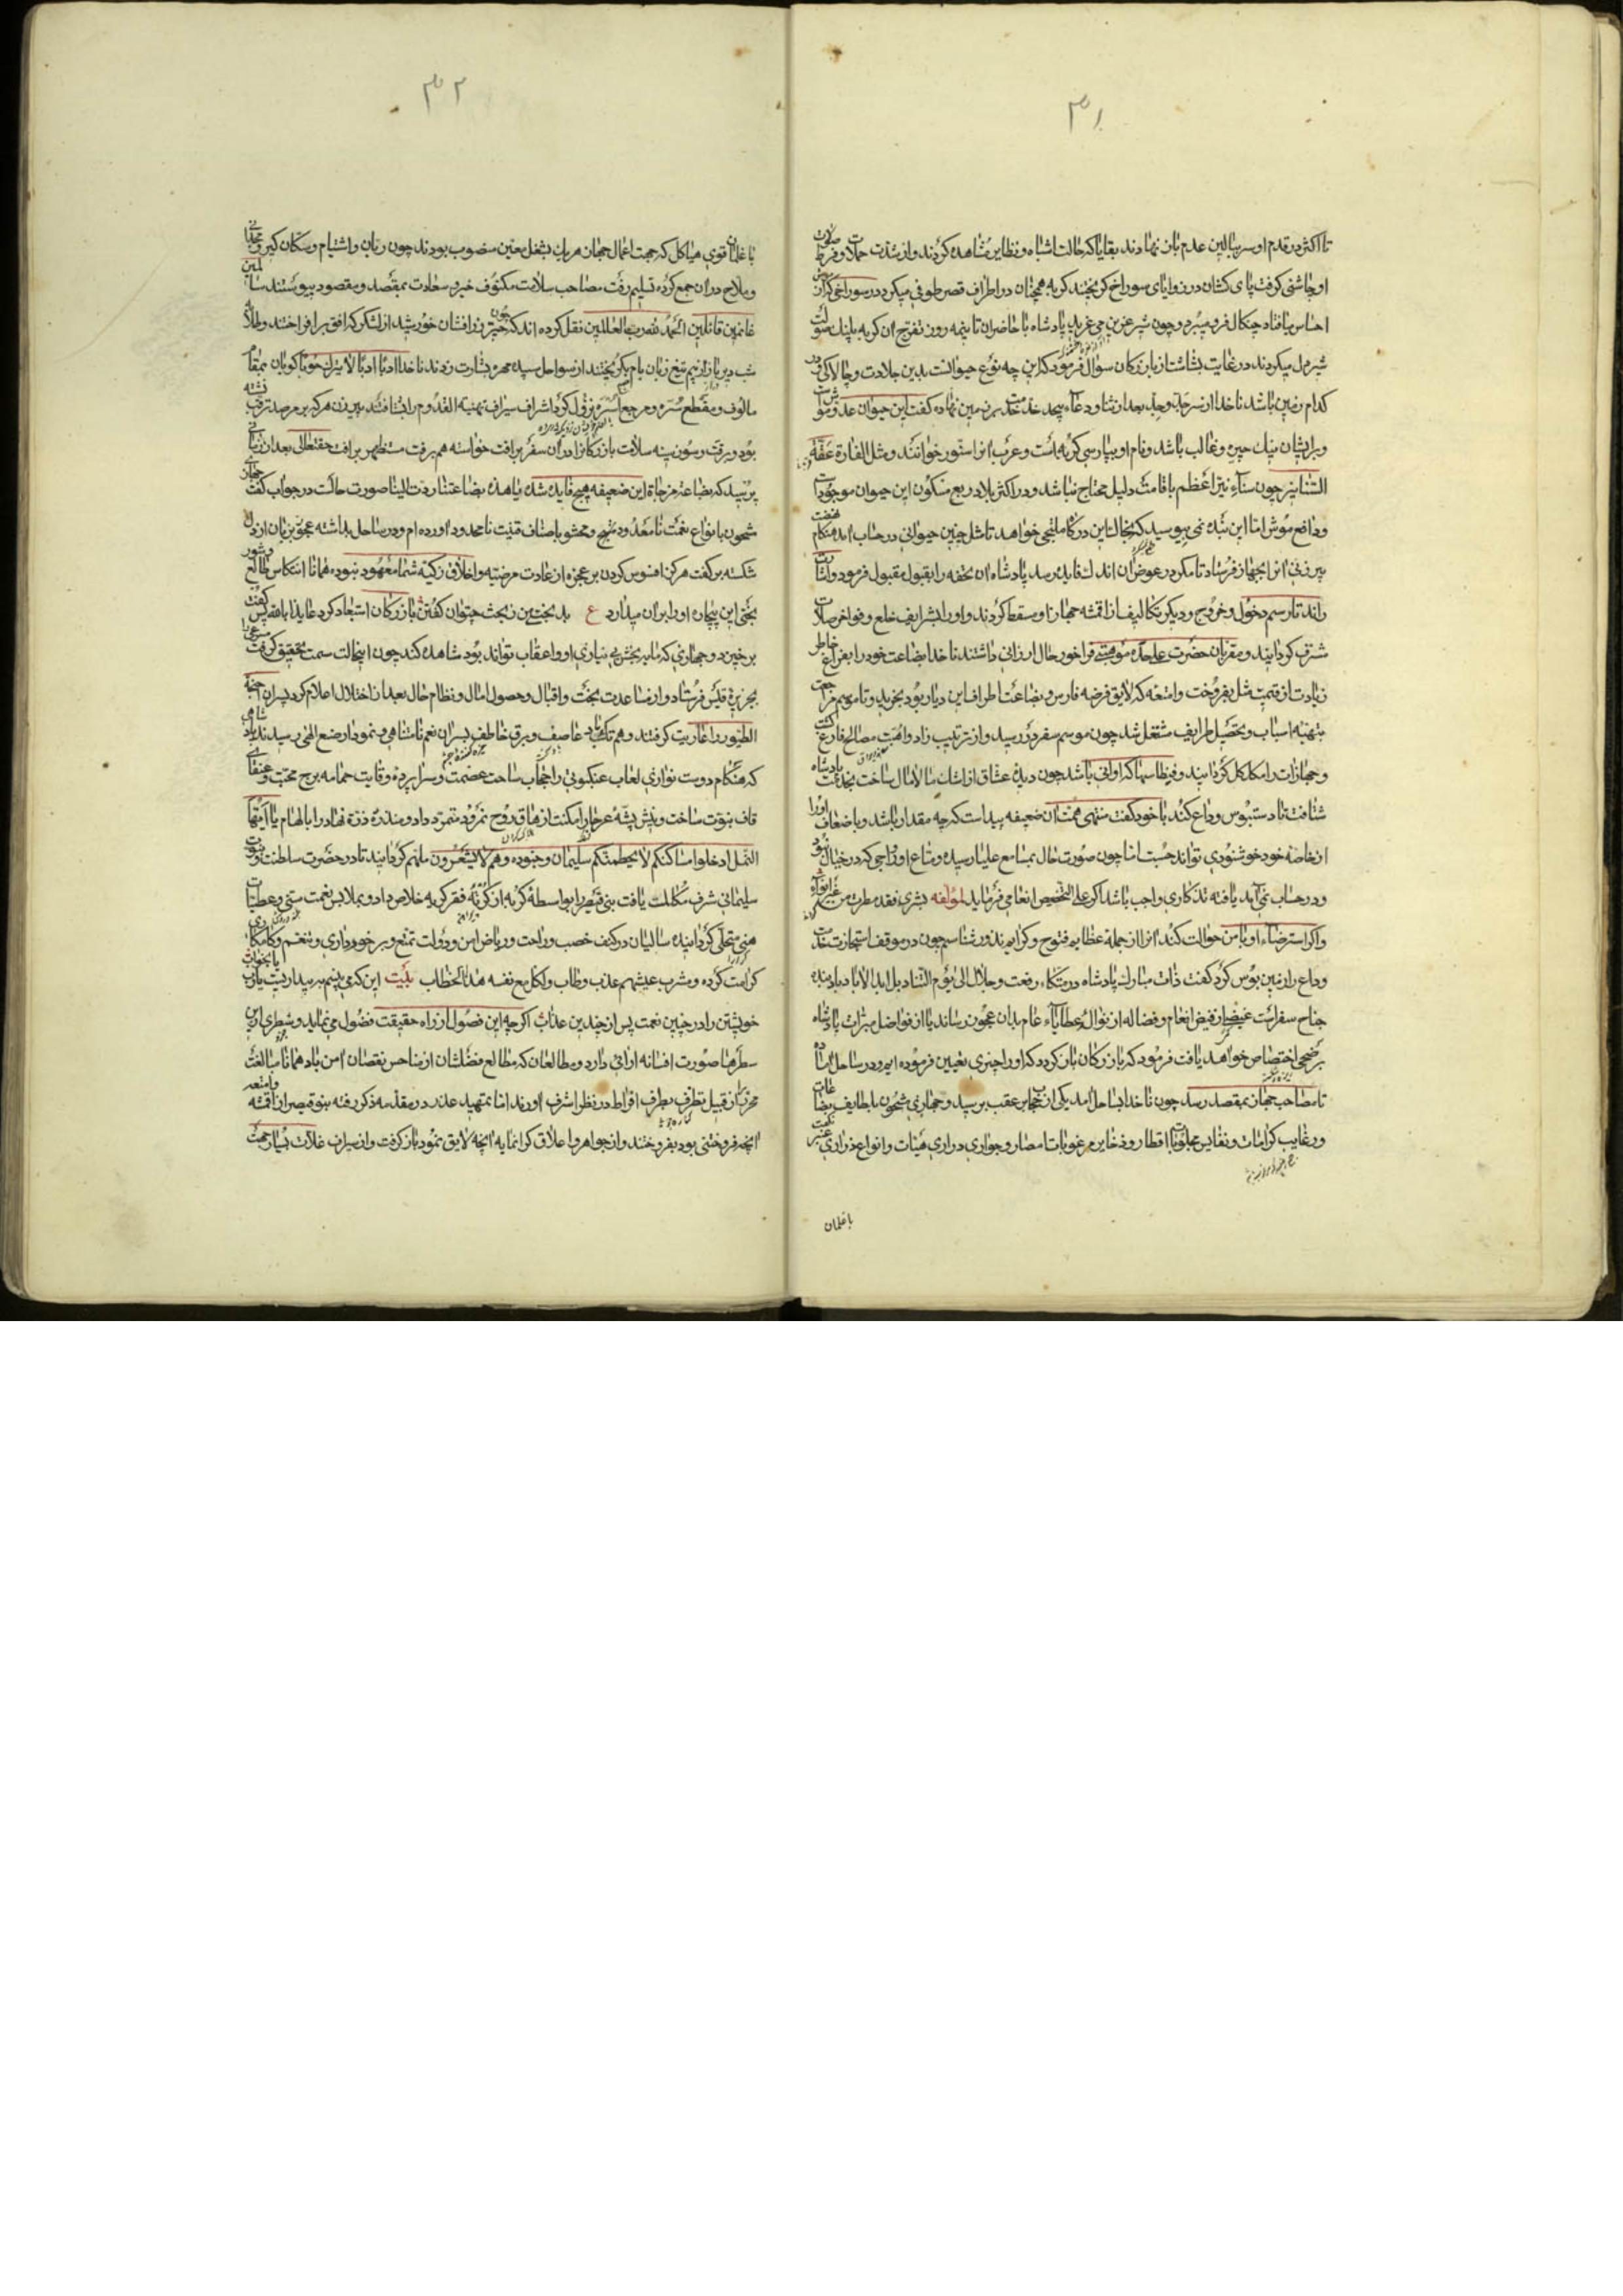 ۳۱
تا اکثر در قدم او سر ببالین عدم باز نهادند بقایا که حالت اشباه و نظایر مشاهده کردند و از شدت حملات و فرط صولت
او چاشنی گرفت پای کشان در زوایای سوراخ گریختند گربه همچنان در اطراف قصر طوفی میکرد در سوراخی کز آن موش
احساس یافتاد چنکال فرو میبرد و چون شیر عزین می غرید پادشاه با حاضران تا نیمه روز تفرج آن گربه پلنک صولت
شیر دل میکردند در غایت بشاشت از بازرکان سؤال فرمود که این چه نوع حیوانست بدین جلادت و چالاکی و در
کدام زمین باشد ناخدا از سر جد و جد بعد از ثنا و دعاء بیحد خدمت خد بر زمین نهاده گفت این حیوان عدو موشست
و بر ایشان نیک چیره و غالب باشد و نام او بپارسی گربه است و عرب انرا سنور خوانند و مثل الفارة عقة
السنانیر چون سناء نیر اعظم باقامت دلیل محتاج نباشد و در اکثر بلاد ربع مسکون این حیوان موجودست
و دافع موش اما این بنده نمی بیوسید که بحالت این در کاه ملتجی خواهد تا مثل چنین حیوانی در حساب اید هنگام نهضت
پیر زنی انرا بجهاز فرستاد تا مکر در عوض آن اندک فایده رسد پادشاه ان تحفه را بقبول مقبول فرمود و اشارت
راند تا رسم دخول و خروج و دیکر تکالیف از اقمشه جهاز او سقط کردند و او را بتشریف خلع و فواخر صلات
مشرف کردانید و مقربان حضرت علی حده موهبتی فراخور حال ارزانی داشتند ناخدا بضاعت خود را بفراغ خاطر
زیادت از قیمت مثل بفروخت و امتعه که لایق فرضه فارس و بضاعت اطراف این دیار بود بخرید و تا موسم مراجعت
بتهیه اسباب و تحصیل طرایف مشتغل شد چون موسم سفر در رسید و از ترتیب زاد و اهبت مصالح فارغ کشت
و جهازات را مکلل کردانید و فیظا سیما که اوانی باشد چون دیده عشاق از اشک مالامال ساخت بخدمت پادشاه
شتافت تا دستبوس وداع کند با خود کفت منتهی همت ان ضعیفه پیداست که چه مقدار باشد و باضعاف اورا
از خاصه خود خوشنودی تواند جست اما چون صورت حال بمسامع علیا رسیده و متاع او رواجی که در خیال نبود
و در حساب نمی آمد یافته تذکاری واجب باشد اکر علی التخصیص انعامی فرماید لمؤلفه بشری فقد مطرت من غیر انواء
و اکر استرضاء او با من حوالت کند انرا از جمله عظایم فتوح و کرایم نذور شناسم چون در موقف استجازت خدمت
وداع را زمین بوس کرد کفت ذات مبارک پادشاه در متکاء رفعت و جلال الی یوم التناد بل ابد الاباد باد بنده
جناح سفر است عیضه از فیض انعام و فضاله از نوال و عطایاء عام بدان عجوز رساند یا از فواضل مبرات پادشاه
برضحی اختصاص خواهد یافت فرمود که بازرکان باز کردد که او را چیزی تعیین فرموده ایم و در ساحل ایستاده
تا مصاحب جهاز بمقصد رسد چون ناخدا بساحل امد یکی از حجاب بر عقب برسید و جهازی مشحون بلطایف بضاعات
و رغایب کرامات و نفایس مجلوبات اقطار و ذخایر مرغوبات امصار و جواری دراری هیئات و انواع عذاری عنبر نکهت
با غلمان
۳۲
با غلمان قوی هیاکل که جهت اعمال جهاز هر یک بشغل معین منصوب بودند چون ربان و اشتیام و سکان کیر و مجدافی
و ملاح دران جمع کرده تسلیم رفت مصاحب سلامت مکنوف خیر و سعادت بمقصد و مقصود بپیوستند سالمین
غانمین قائلین الحمد لله رب العالمین نقل کرده اند که چون حیزبز زرافشان خورشید از لشکر که افق برافراختند و طلایه
شب دیریاز از بیم تیغ زبان بام بکریختند از سواحل سپیده مهره بشارت زدند ناخدا ادبا ادبا لامیران خوبا کویان بمقام
مالوف و مقطع سره و مرجع اسره نزول کرد اشراف سیراف بتهنیه القدوم را بشتافتند پیر زن هم که بر مرصد ترقب نشسته
بود و برقت و سوز پنبه سلامت بازرکانرا دران سفر برافت خواسته هم برفت مستظهر برافت حق تعالی بعد از زمانی
پرسید که بضاعة مزجاة این ضعیفه هیچ فایده شده یا هذه بضاعتنا ردت الینا صورت حالست در جواب کفت جهازی
مشحون بانواع نعمت نامعدود منهج و محشو باصناف قنیت نامحدود اورده ام و در ساحل بداشته عجوز بزبان از دل
شکسته بر کفت هرکز افسوس کردن بر عجزه از عادت مرضیه و اخلاق زکیه شما معهود نبوده همانا انتکاس طالع و شور
بختی این بیچاره او را بران میدارد ع بد بختتر من ز بخت چتوان کفتن بازرکان استبعاد کرد عایذا بالله پس کفت
برخیزد و جهازی که مایه بخش بی نیازی او و اعقاب تواند بود مشاهده کند چون اینحالت سمت تحقیق کرفت مسرعی را
بجزیره قیس فرستاد و از مساعدت بخت و اقبال و حصول امال و نظام حال بعد از اختلال اعلام کرد پسران اجنحة
الطیور را عاریت کرفتند و هم تک باد عاصف و برق خاطف بسر ان نعم نامتناهی و نمودار صنع الهی رسیدند پادشاهی
که هنکام دوست نوازی لعاب عنکبوتی را حجاب ساحت عصمت و سراپرده وقایت حمامه برج محبت و عنقای
قاف نبوت ساخت و نیش پشه عرجا را مکنت ازهاق روح نمرود متمرد داد و منذره ذرة نهاد را بالهام یا ایها
النمل ادخلوا مساکنکم لا یحطمنکم سلیمان و جنوده و هم لا یشعرون ملهم کردانید تا در حضرت سلطنت و نبوت
سلیمانی شرف مکالمت یافت بنی قیصر را بواسطه کربه از کربه فقر کریه خلاص داد و بملابس نعمت سنی و عطیات
هنی متحلی کردانیده سالیان در کنف خصب و راحت و ریاض امن و دولت تمتع و برخورداری و تنعم و کامکاری
کرامت کرده و مشرب عیشهم عذب و طاب و لکل مع نفسه هذا الخطاب بیت این که می بینم به بیداریست یارب یا بخواب
خویشتن را در چنین نعمت پس از چندین عذاب اکرچه این فصول از راه حقیقت فضول می نماید و سطری ازین
سطرها صورت افسانه ارائی دارد و مطالعان که مطالع فضلشان از مناحس نقصان امن باد همانا مبالغت
محرر از قبیل تطرف بطرف افراط در نظر اشرف اورند اما بتمهید عذر در مقدمه ذکر رفته بنو قیصر از اقمشه و امتعه
انچه فروختنی بود بفروختند و از جواهر و اعلاق کرانمایه انچه لایق نمود باز کرفت و از سیراف غلات بسیار جهت